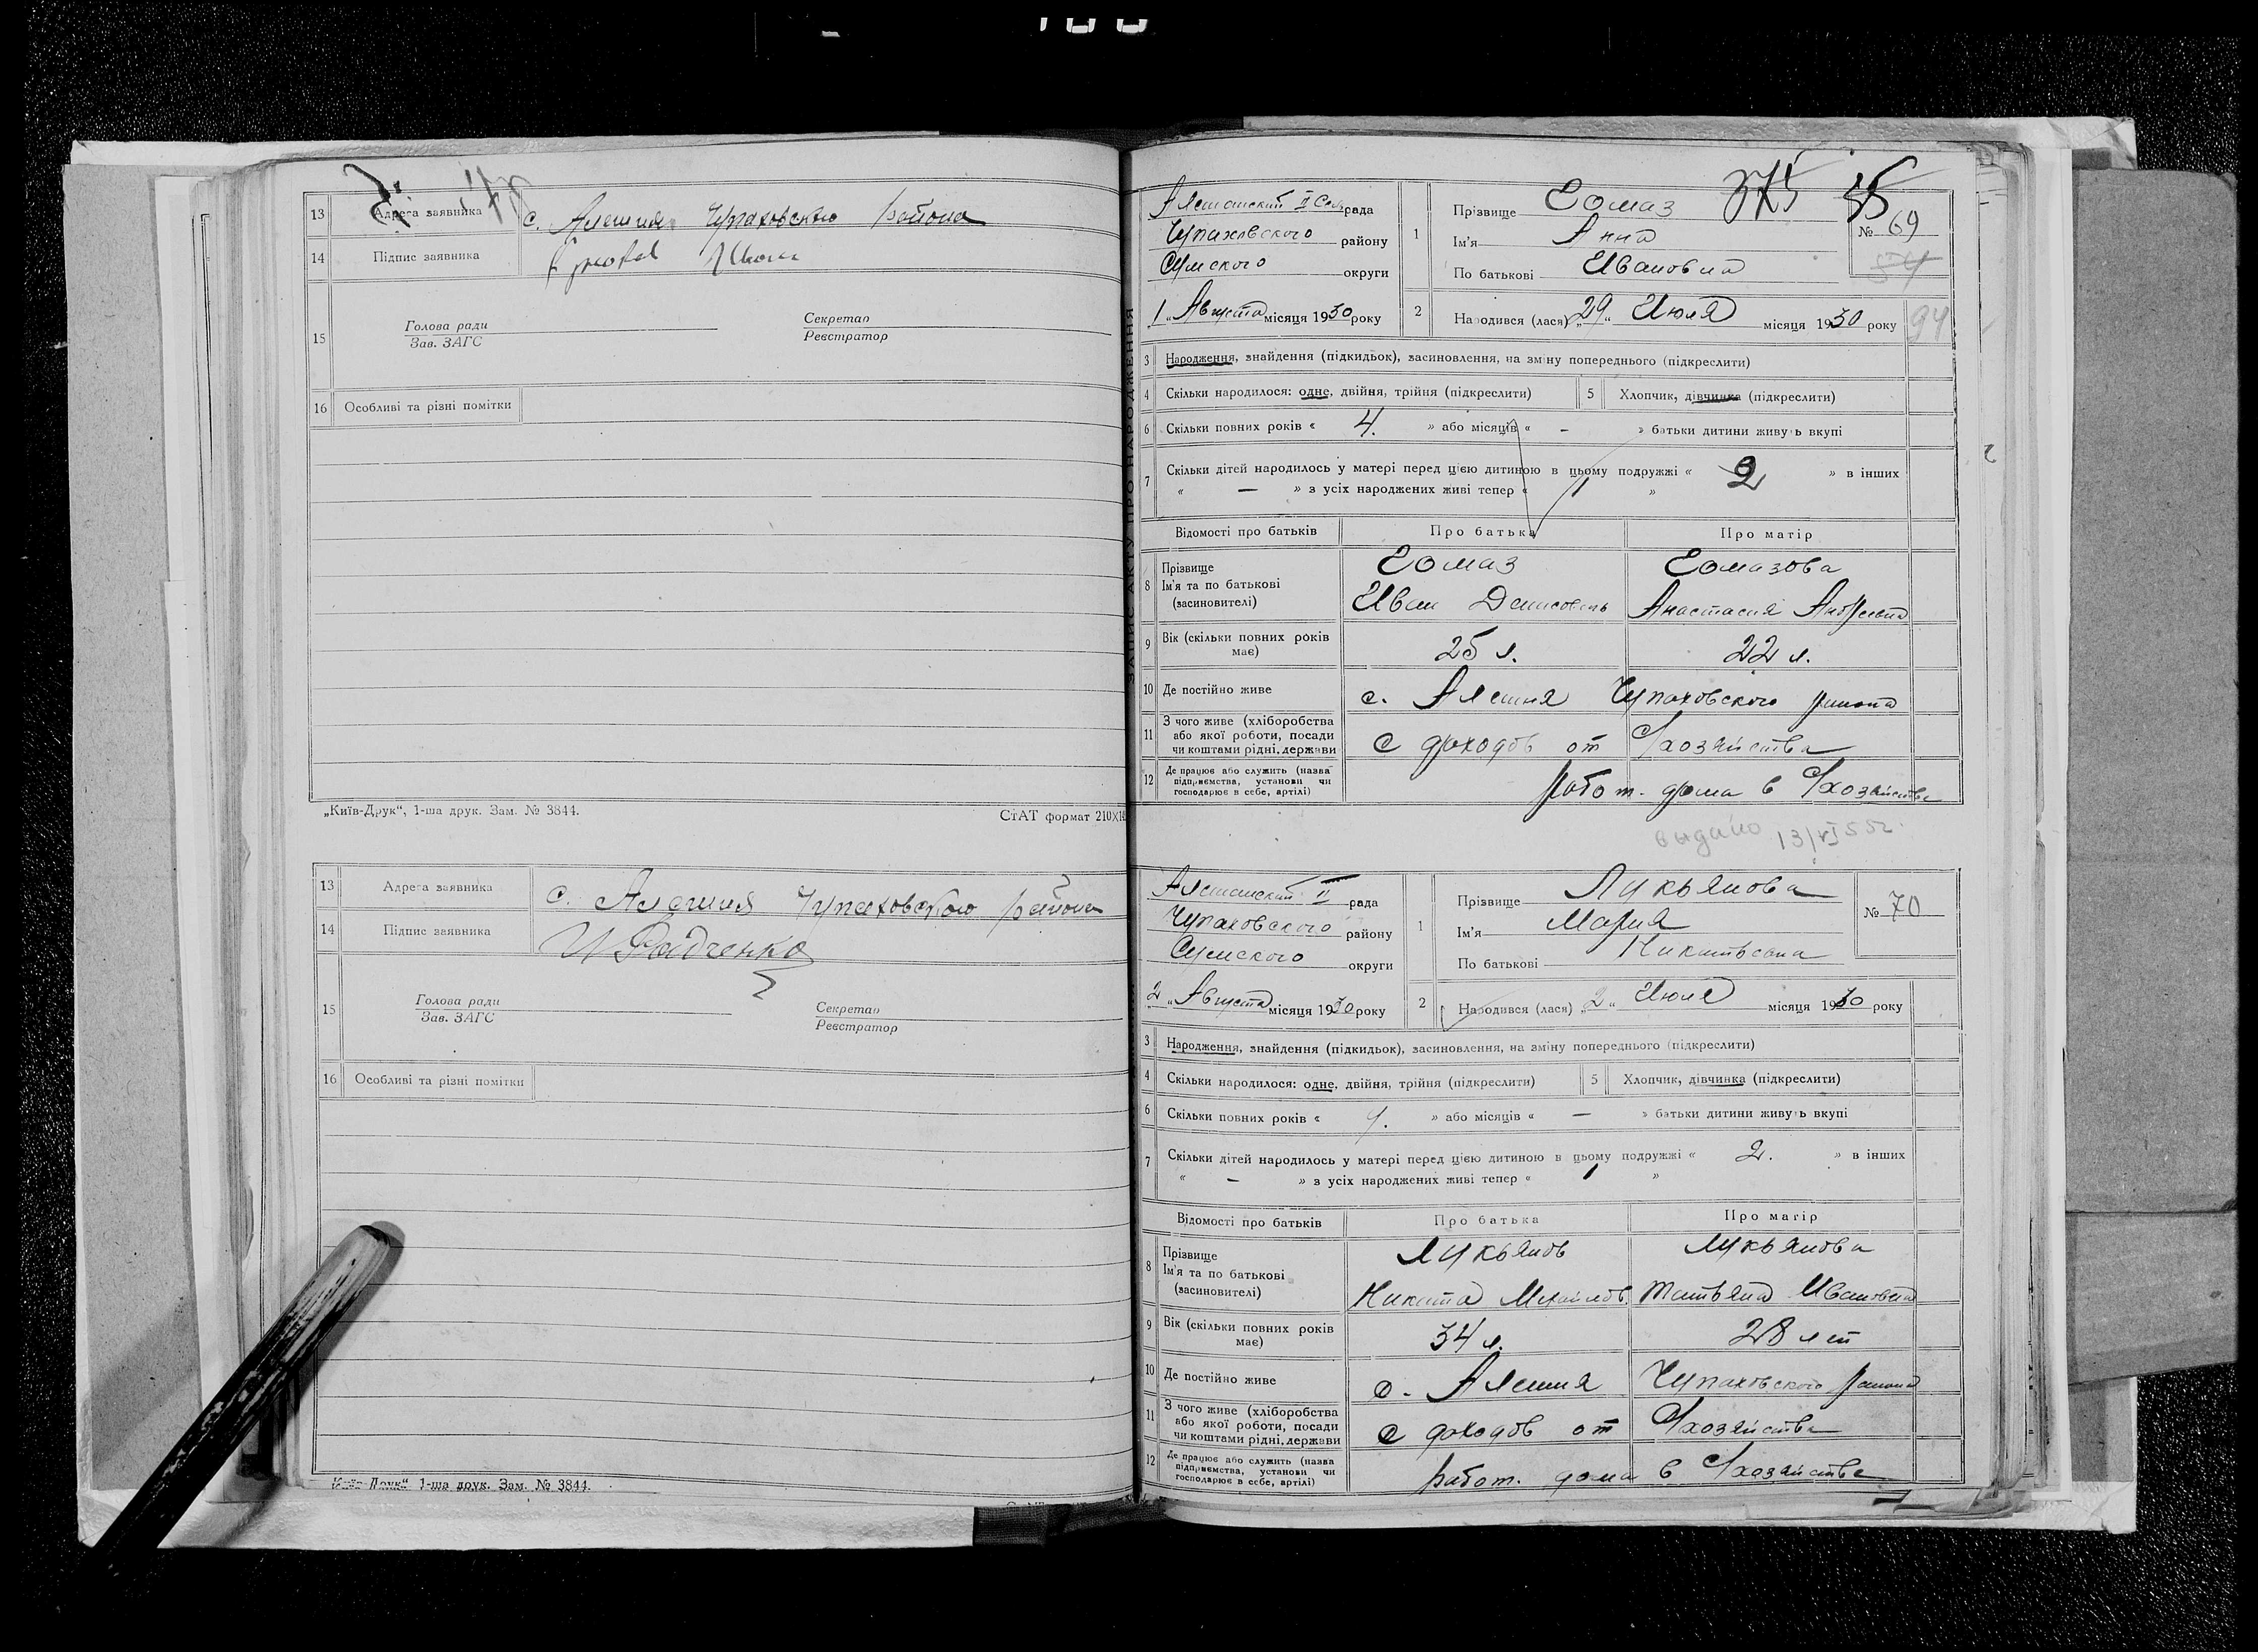 13 Адреса заявника с. Алешня Чупаховского района
14 Підпис заявника
15 Голова ради
Зав. ЗАГС
Секретар
Реєстратор
16 Особливі та різні помітки
„Київ-Друк“, 1-ша друк. Зам. № 3844.
СтАТ формат 210×14
13 Адреса заявника с. Алешня Чупаховского района
14 Підпис заявника И Радченко
15 Голова ради
Зав. ЗАГС
Секретар
Реєстратор
16 Особливі та різні помітки
„Київ-Друк“ 1-ша друк. Зам. № 3844.
ЗАПИС АКТУ ПРО НАРОДЖЕННЯ
375
Алешанский II Сель рада
Чупаховского району
Сумского округи
„1„ Августа місяця 1930 року
1 Прізвище Сомаз
Ім'я Анна
По батькові Ивановна
№ 69
54
2 Народився (лася) „29“ Июля місяця 1930 року
94
3 Народження, знайдення (підкидьок), засиновлення, на зміну попереднього (підкреслити)
4 Скільки народилося: одне, двійня, трійня (підкреслити) 5 Хлопчик, дівчинка (підкреслити)
6 Скільки повних років « 4. » або місяців « – » батьки дитини живуть вкупі
7 Скільки дітей народилось у матері перед цією дитиною в цьому подружжі « 2 » в інших
« — » з усіх народжених живі тепер « 1 »
Відомості про батьків Про батька Про матір
8 Прізвище Сомаз Сомазова
Ім'я та по батькові Иван Денисович Анастасия Андреевна
(засиновителі)
9 Вік (скільки повних років має) 25 л. 22 л.
10 Де постійно живе с. Алешня Чупаховского района
11 З чого живе (хліборобства
або якої роботи, посади
чи коштами рідні, держави С доходов от С/хозяйства
12 Де працює або служить (назва
підприємства, установи чи
господарює в себе, артілі) работ. дома в С/хозяйстве
выдано 13/VI 55г.
Алешанский II рада
Чупаховского району
Сумского округи
„2„ Августа місяця 1930 року
1 Прізвище Лукьянова
Ім'я Мария
По батькові Никитьевна
№ 70
2 Народився (лася) „2“ Июля місяця 1930 року
3 Народження, знайдення (підкидьок), засиновлення, на зміну попереднього (підкреслити)
4 Скільки народилося: одне, двійня, трійня (підкреслити) 5 Хлопчик, дівчинка (підкреслити)
6 Скільки повних років « » або місяців « — » батьки дитини живуть вкупі
7 Скільки дітей народилось у матері перед цією дитиною в цьому подружжі « 2. » в інших
« – » з усіх народжених живі тепер « 1 »
Відомості про батьків Про батька Про матір
8 Прізвище Лукьянов Лукьянова
Ім'я та по батькові
(засиновителі) Никита Михайлов. Татьяна Ивановна
9 Вік (скільки повних років має) 34 л. 28 лет
10 Де постійно живе с. Алешня Чупаховского района
11 З чого живе (хліборобства
або якої роботи, посади
чи коштами рідні, держави С доходов от С/хозяйства
12 Де працює або служить (назва
підприємства, установи чи
господарює в себе, артілі) работ. дома в С/хозяйстве